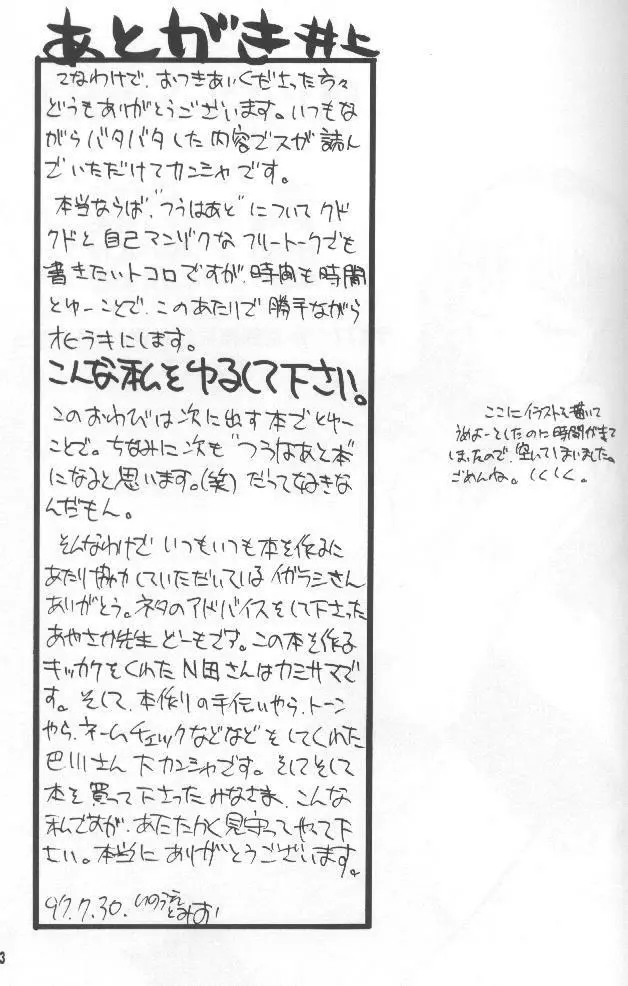 あとがき 井上
てなわけで、おつきあいくださった方々
どうもありがとうございます。いつもな
がらバタバタした内容でスが読ん
でいただけてカンシャです。
本当ならば、"つうはあと"についてクド
クドと自己マンゾクなフリートークでも
書きたいトコロですが、時間も時間
とゆーことで、このあたりで勝手ながら
オヒラキにします。
こんな私をゆるして下さい。
このおわびは次に出す本でとゆー
ことで。ちなみに次も"つうはあと本"
になると思います。(笑) だって好きな
んだもん。
そんなわけで いつもいつも本を作るに
あたり協力していただいているイガラシさん
ありがとう。ネタのアドバイスをして下さった
あやさか先生 どーもです。この本を作る
キッカケをくれた N田さんはカミサマで
す。そして、本作りの手伝いやら、トーン
やら、ネームチェックなどなどをしてくれた
巴川さん 大カンシャです。そしてそして
本を買って下さったみなさま、こんな
私ですが、あたたかく見守ってやって下
さい。本当に ありがとうございます。
97.7.30. いのうえ
とみお
ここにイラストを描いて
うめよーとしたのに時間が来て
しまったので、空いてしまいました。
ごめんね。しくしく。
3